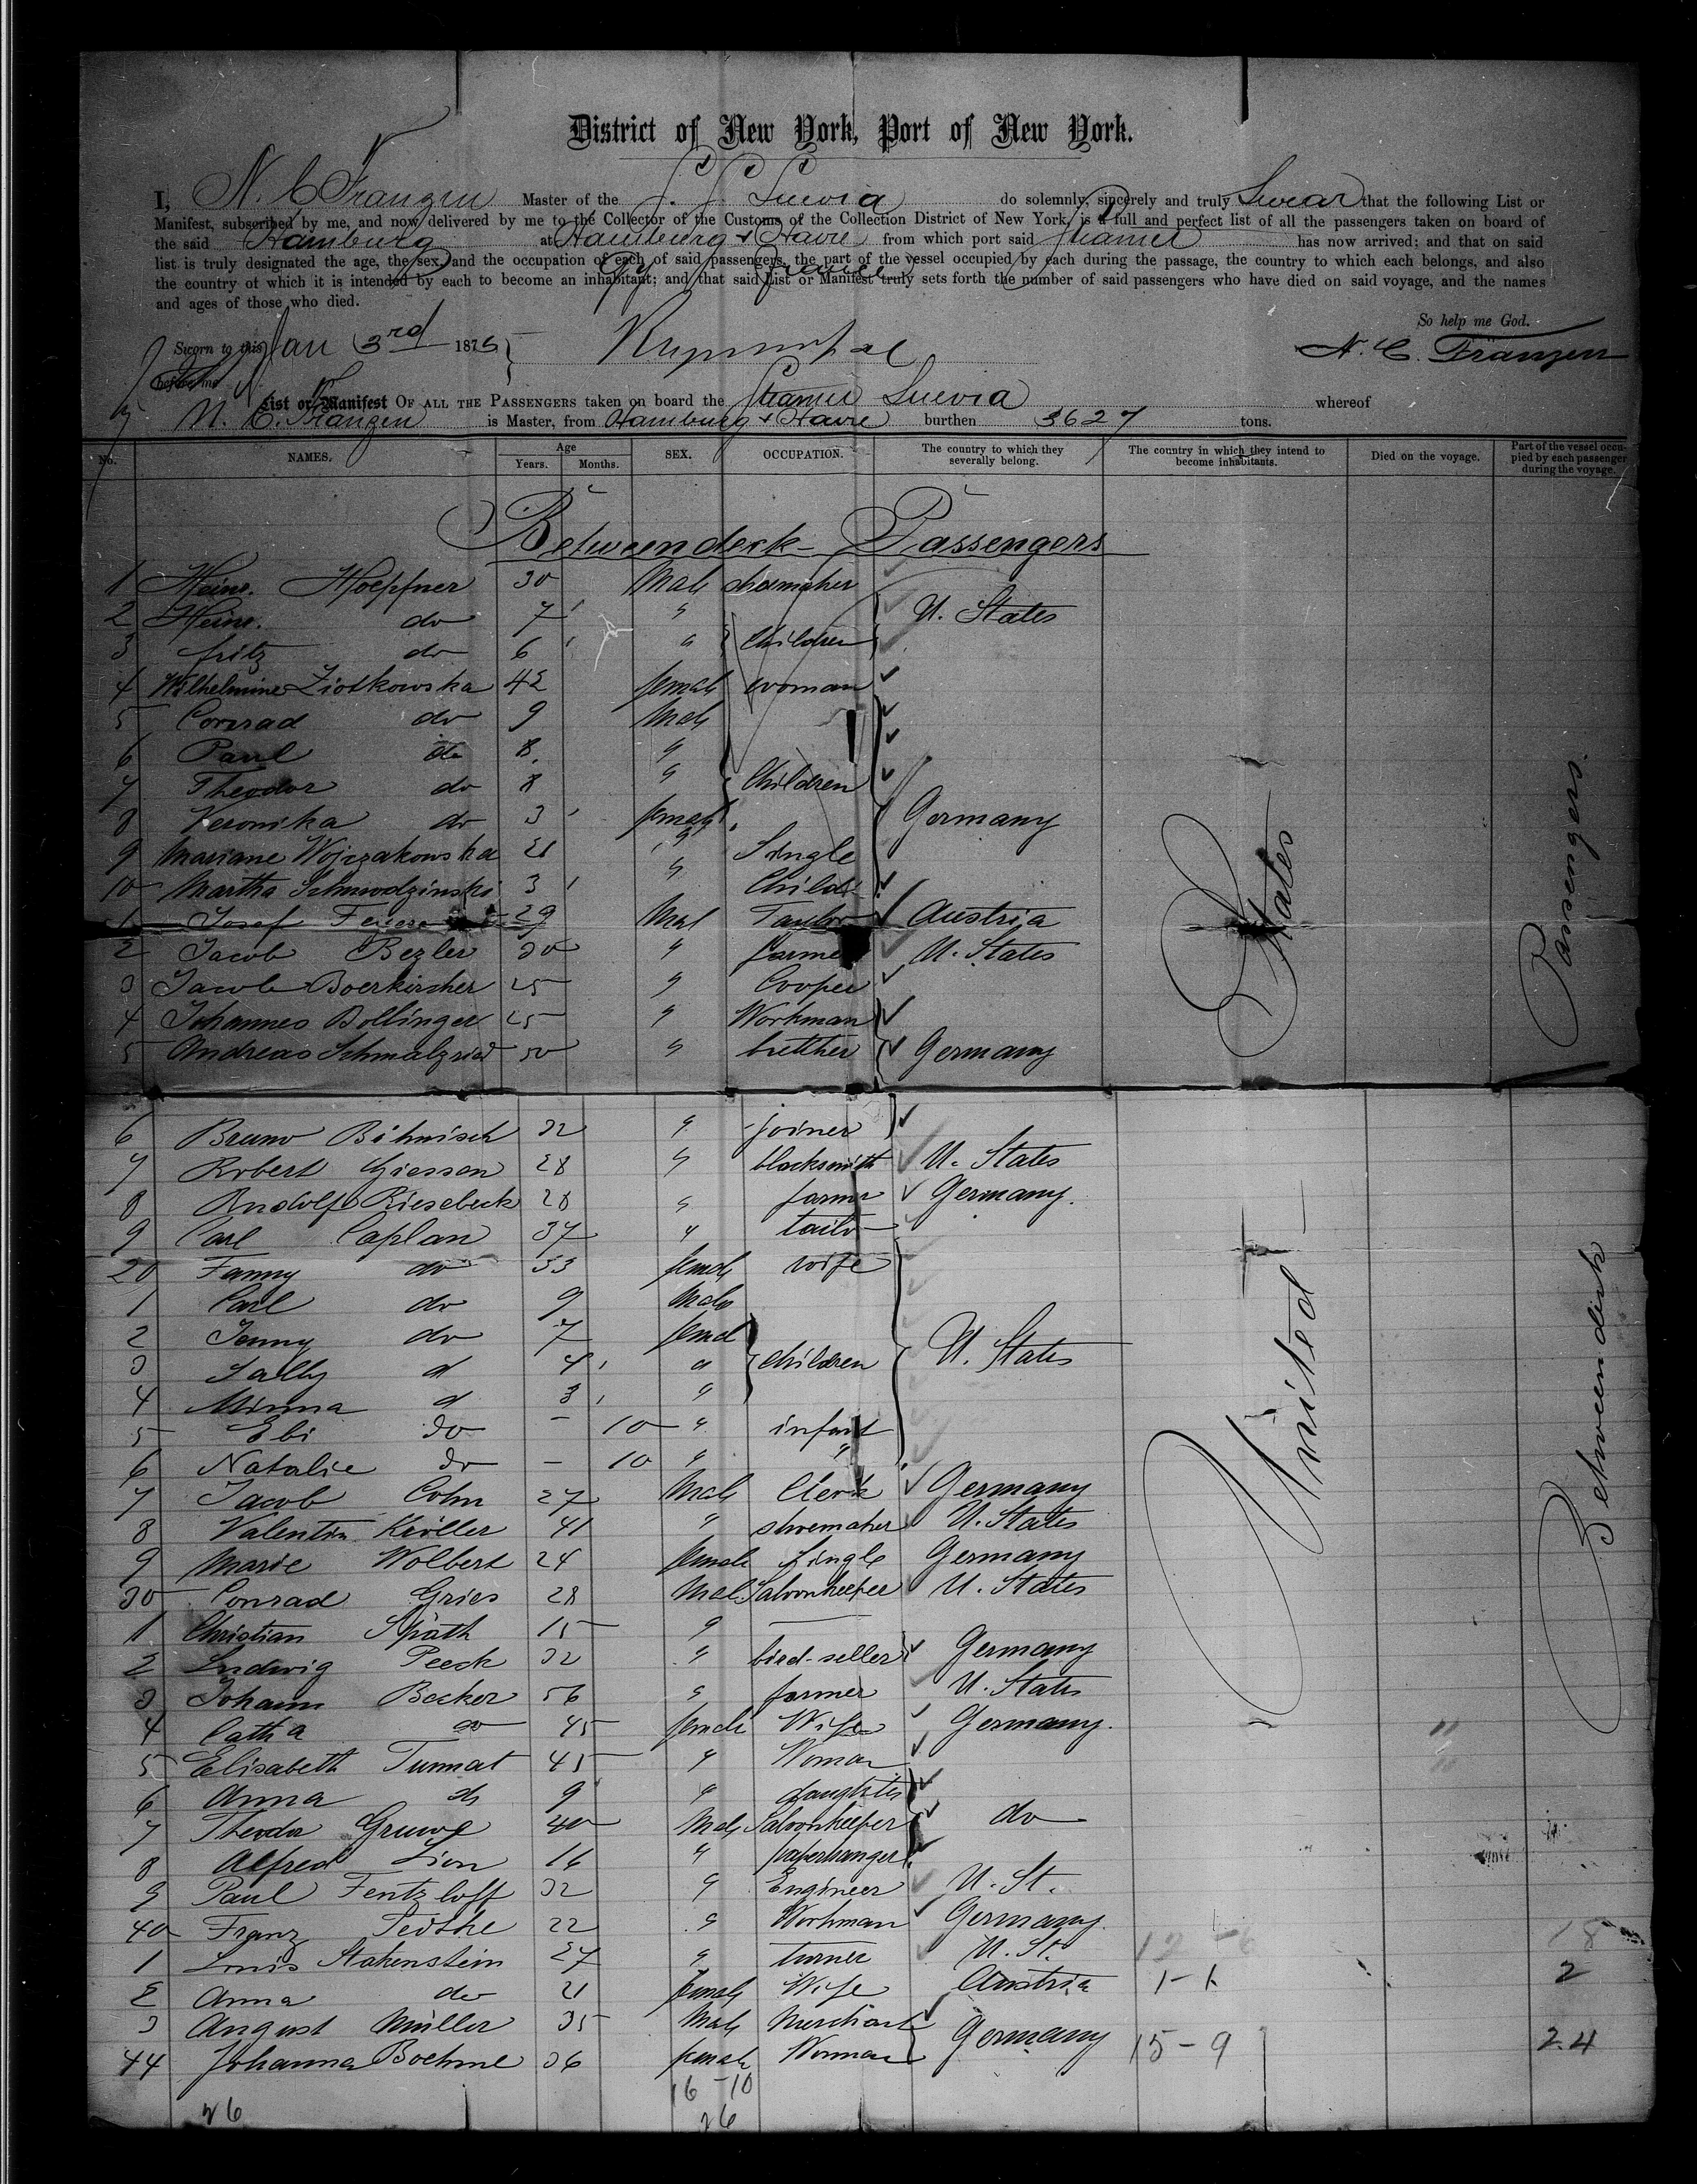 District of New York, Port of New York.
I, N. C. Franzen Master of the S. S. Suevia do solemnly, sincerely and truly Swear that the following List or
Manifest, subscribed by me, and now delivered by me to the Collector of the Customs of the Collection District of New York, is a full and perfect list of all the passengers taken on board of
the said Hamburg at Hamburg & Havre from which port said Steamer has now arrived; and that on said
list is truly designated the age, the sex, and the occupation of each of said passengers, the part of the vessel occupied by each during the passage, the country to which each belongs, and also
the country of which it is intended by each to become an inhabitant; and that said List or Manifest truly sets forth the number of said passengers who have died on said voyage, and the names
and ages of those who died.
So help me God.
Sworn to this Jan 3rd 1876
N. C. Franzen
before me
List or Manifest OF ALL THE PASSENGERS taken on board the Steamer Suevia whereof
N. C. Franzen is Master, from Hamburg & Havre burthen 3627 tons.
No. NAMES. Age Years. Months. SEX. OCCUPATION. The country to which they severally belong. The country in which they intend to become inhabitants. Died on the voyage. Part of the vessel occupied by each passenger during the voyage.
Betweendeck Passengers
1 Heinr. Hoepfner 30 Male shoemaker
2 Heinr. do 7 " U. States
3 Fritz do 6 " Children
4 Wilhelmine Ziotkowska 42 female woman
5 Conrad do 9 Male
6 Paul do 8 "
7 Theodor do 8 " Children
8 Veronika do 3 female Germany
9 Mariane Wojczakowska 21 " Single
10 Martha 3 " Child
1 Josef 29 Mal Taylor Austria
2 Jacob Bezler 30 " farmer U. States
3 Jacob Boerkircher 25 " Cooper
4 Johannes Bollinger 25 " Workman
5 Andreas Schmalzried 50 " Germany
6 Bruno Bihnisch 32 " joiner
7 Robert Giessen 28 " blacksmith U. States
8 Rudolf Riesebeck 28 " farmer Germany.
9 Carl Caplan 37 " tailor
20 Fanny do 33 female wife
1 Carl do 9 Male
2 Jenny do 7 femal
3 Sally d 4 " children U. States
4 Minna d 3 "
5 Ebi do - 10 " infant
6 Natalie do - 10 " "
7 Jacob Cohn 27 Male Clerk Germany
8 Valentin Kroller 41 " shoemaker U. States
9 Marie Wolbert 24 female Single Germany
30 Conrad Gries 28 Mal Saloonkeeper U. States
1 Christian Späth 15 "
2 Ludwig Peeck 32 " bird-seller Germany
3 Johann Becker 56 " farmer U. States
4 Catha do 45 female Wife Germany.
5 Elisabeth Tummat 45 " Woman
6 Anna do 9 " daughter
7 Theodor Gruwe 40 Male Saloonkeeper do
8 Alfred Lion 16 " paperhanger
9 Paul Fentzloff 32 " Engineer U. St.
40 Franz 22 " Workman Germany.
1 Louis Stahenstein 27 " turner U. St. 18
2 Anna do 21 female Wife Austria 1-1 2
3 August Müller 35 Male Merchant
44 Johanna Boehme 36 female Woman Germany 15-9 24
16-10
26 26
United States
Betweendeck Passengers.